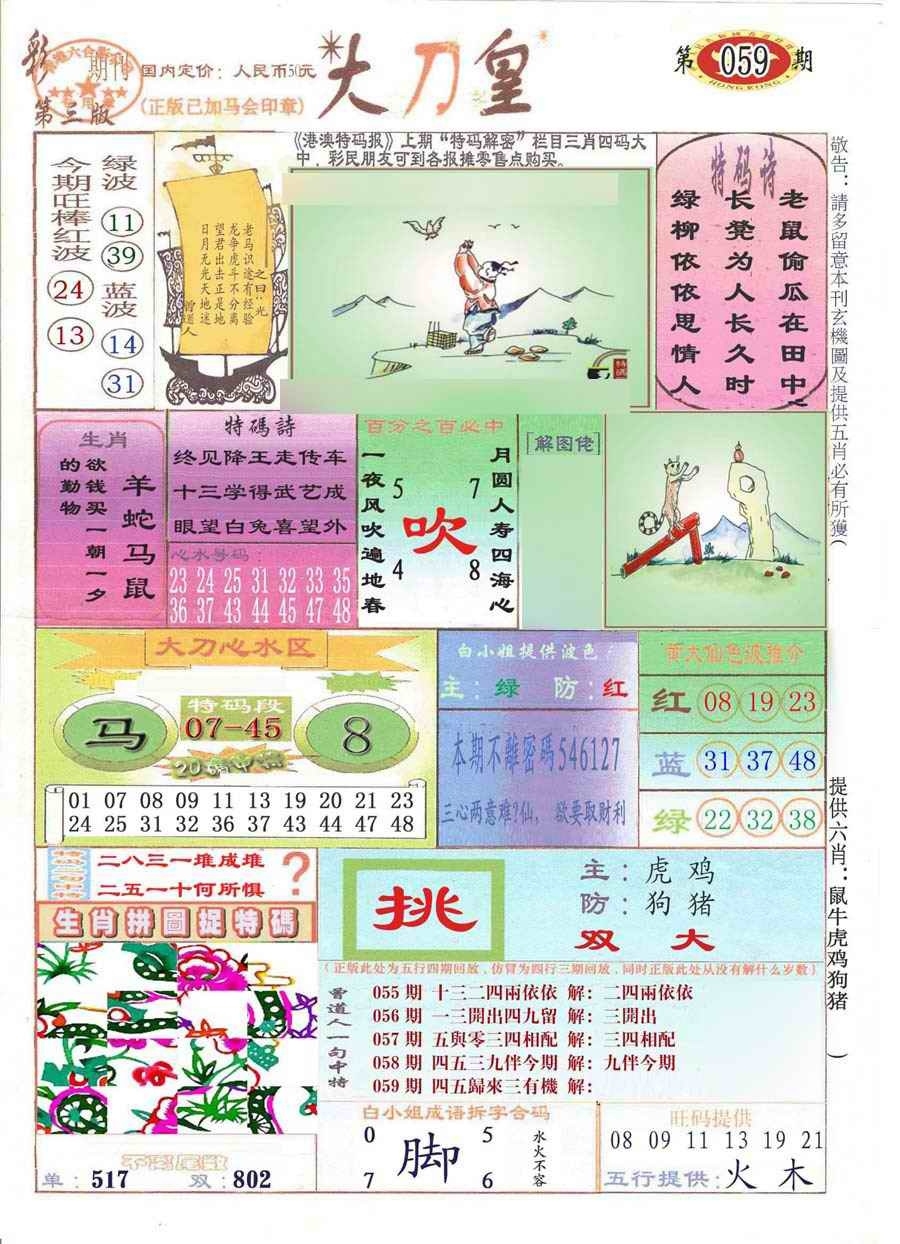 彩
期刊
第三版
国内定价：人民币50元
(正版已加马会印章)
大刀皇
第059期
HONG KONG
今期旺棒红波
24
13
绿波
11
39
蓝波
14
31
老马识途有经验
龙争虎斗不分离
望君出去正是地
日月无光天地迷
曾道人
之曰：光
《港澳特码报》上期“特码解密”栏目三肖四码大
中，彩民朋友可到各报摊零售点购买。
特码诗
老鼠偷瓜在田中
长凳为人长久时
绿柳依依思情人
敬告：請多留意本刊玄機圖及提供五肖必有所獲(
提供六肖：鼠牛虎鸡狗猪 )
生肖
羊蛇马鼠
欲钱买一朝一夕
的勤物
特碼詩
终见降王走传车
十三学得武艺成
眼望白兔喜望外
心水号码：
23 24 25 31 32 33 35
36 37 43 44 45 47 48
百分之百必中
月圆人寿四海心
一夜风吹遍地春
5 7
吹
4 8
[解图佬]
大刀心水区
马
特码段
07-45
8
01 07 08 09 11 13 19 20 21 23
24 25 31 32 36 37 43 44 47 48
白小姐提供波色
主：绿 防：红
本期不離密碼546127
三心两意难?仙， 欲要取财利
黄大仙色波推介
红 08 19 23
蓝 31 37 48
绿 22 32 38
二八三一堆成堆
二五一十何所惧
?
生肖拼圖捉特碼
挑
主：虎 鸡
防：狗 猪
双 大
(正版此处为五行四期回放，仿冒为四行三期回放，同时正版此处从没有解什么岁数)
曾道人一句中特
055期 十三二四兩依依 解：二四兩依依
056期 一三開出四九留 解：三開出
057期 五與零三四相配 解：三四相配
058期 四五三九伴今期 解：九伴今期
059期 四五歸來三有機 解：
单：517 双：802
白小姐成语拆字合码
0 5
脚
7 6
水火不容
旺码提供
08 09 11 13 19 21
五行提供：火 木